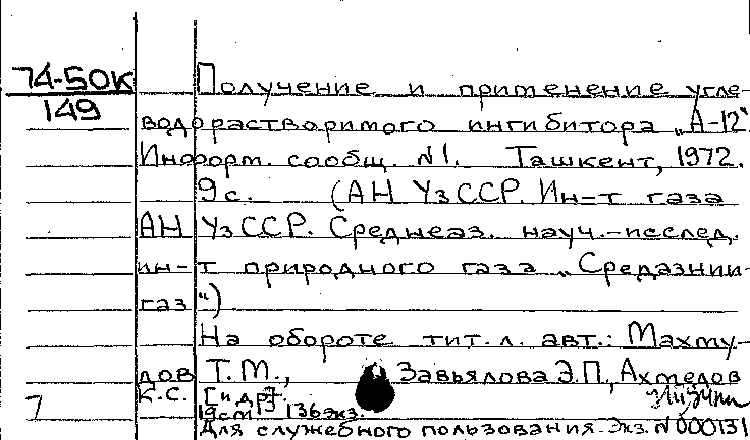 74-50к
149
Получение и применение угле-
водорастворимого ингибитора „А-12“
Информ. сообщ. N1. Ташкент, 1972.
9 с. (АН УзССР. Ин-т газа
АН УзССР. Среднеаз. науч.-исслед.
ин-т природного газа „Средазнии-
газ“)
На обороте тит. л. авт.: Махму-
дов Т.М., Завьялова Э.П., Ахмедов
К.С. [и др]
19см. 136экз.
Для служебного пользования. Экз. N000131
7